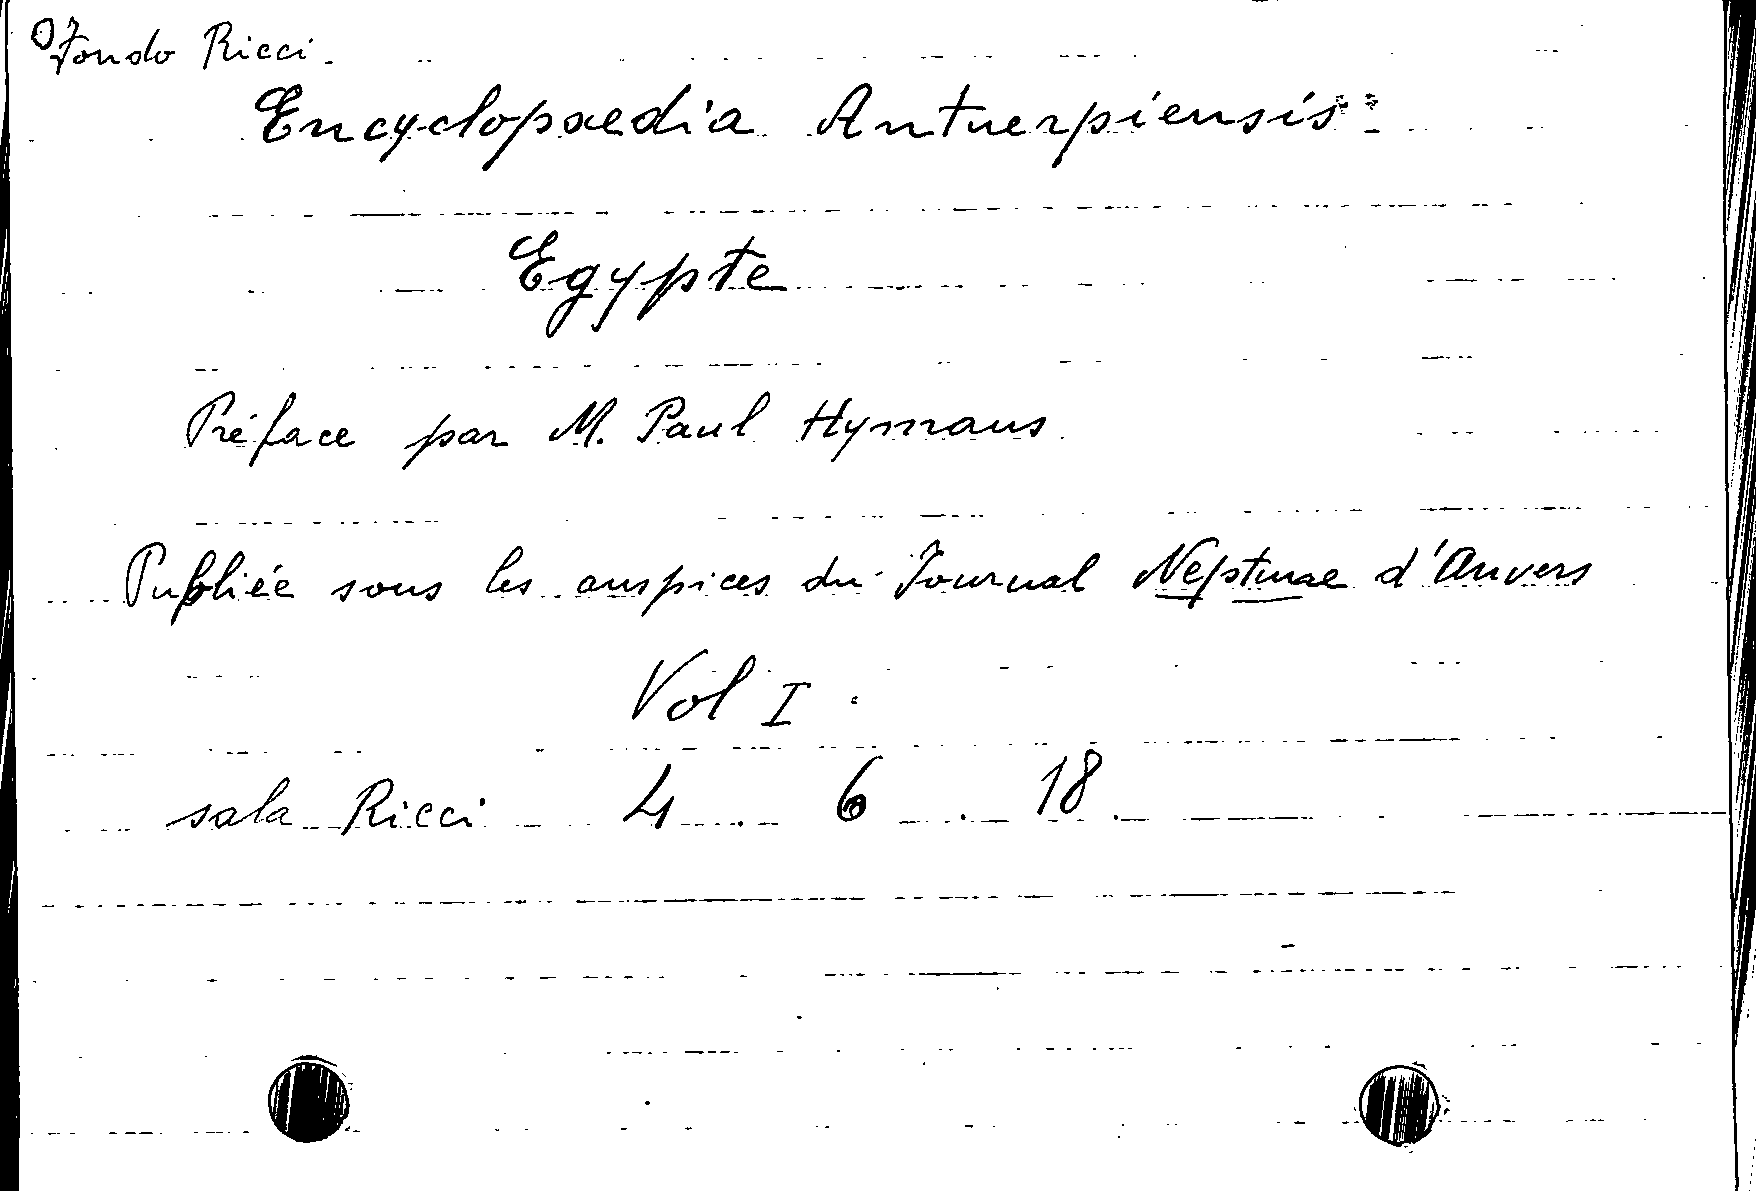 Fondo Ricci.
Encyclopaedia Antuerpiensis
Egypte
Préface par M. Paul Hymans
Publiée sous les auspices du Journal Neptune d'Anvers
Vol I.
sala Ricci 4. 6. 18.